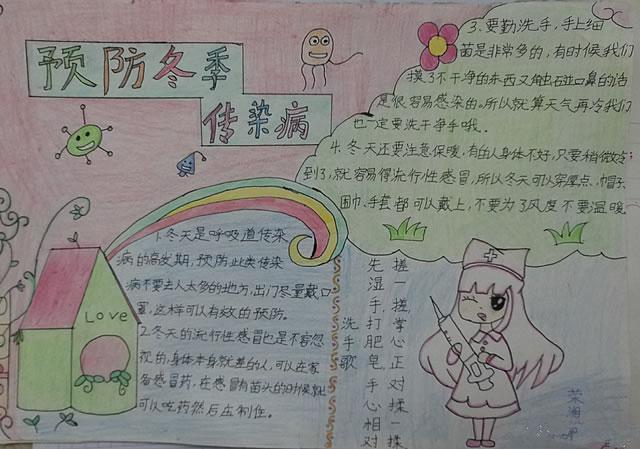 预防冬季
传染病
1.冬天是呼吸道传染
病的高发期,预防此类传染
病不要去人太多的地方,出门尽量戴口
罩,这样可以有效的预防。
2.冬天的流行性感冒也是不容忽
视的,身体本身就差的人,可以在家
备感冒药,在感冒有苗头的时候就
可以吃药然后压制住。
LOVE
3.要勤洗手,手上细
菌是非常多的,有时候我们
摸了不干净的东西又触碰口鼻的话
是很容易感染的。所以就算天气再冷我们
也一定要洗干净手哦。
4.冬天还要注意保暖,有的人身体不好,只要稍微冷
到了,就容易得流行性感冒,所以冬天可以穿厚点、帽子、
围巾、手套都可以戴上,不要为了风度不要温暖。
洗手歌
先湿手,打肥皂,手心相对
搓一搓,掌心正对揉一揉